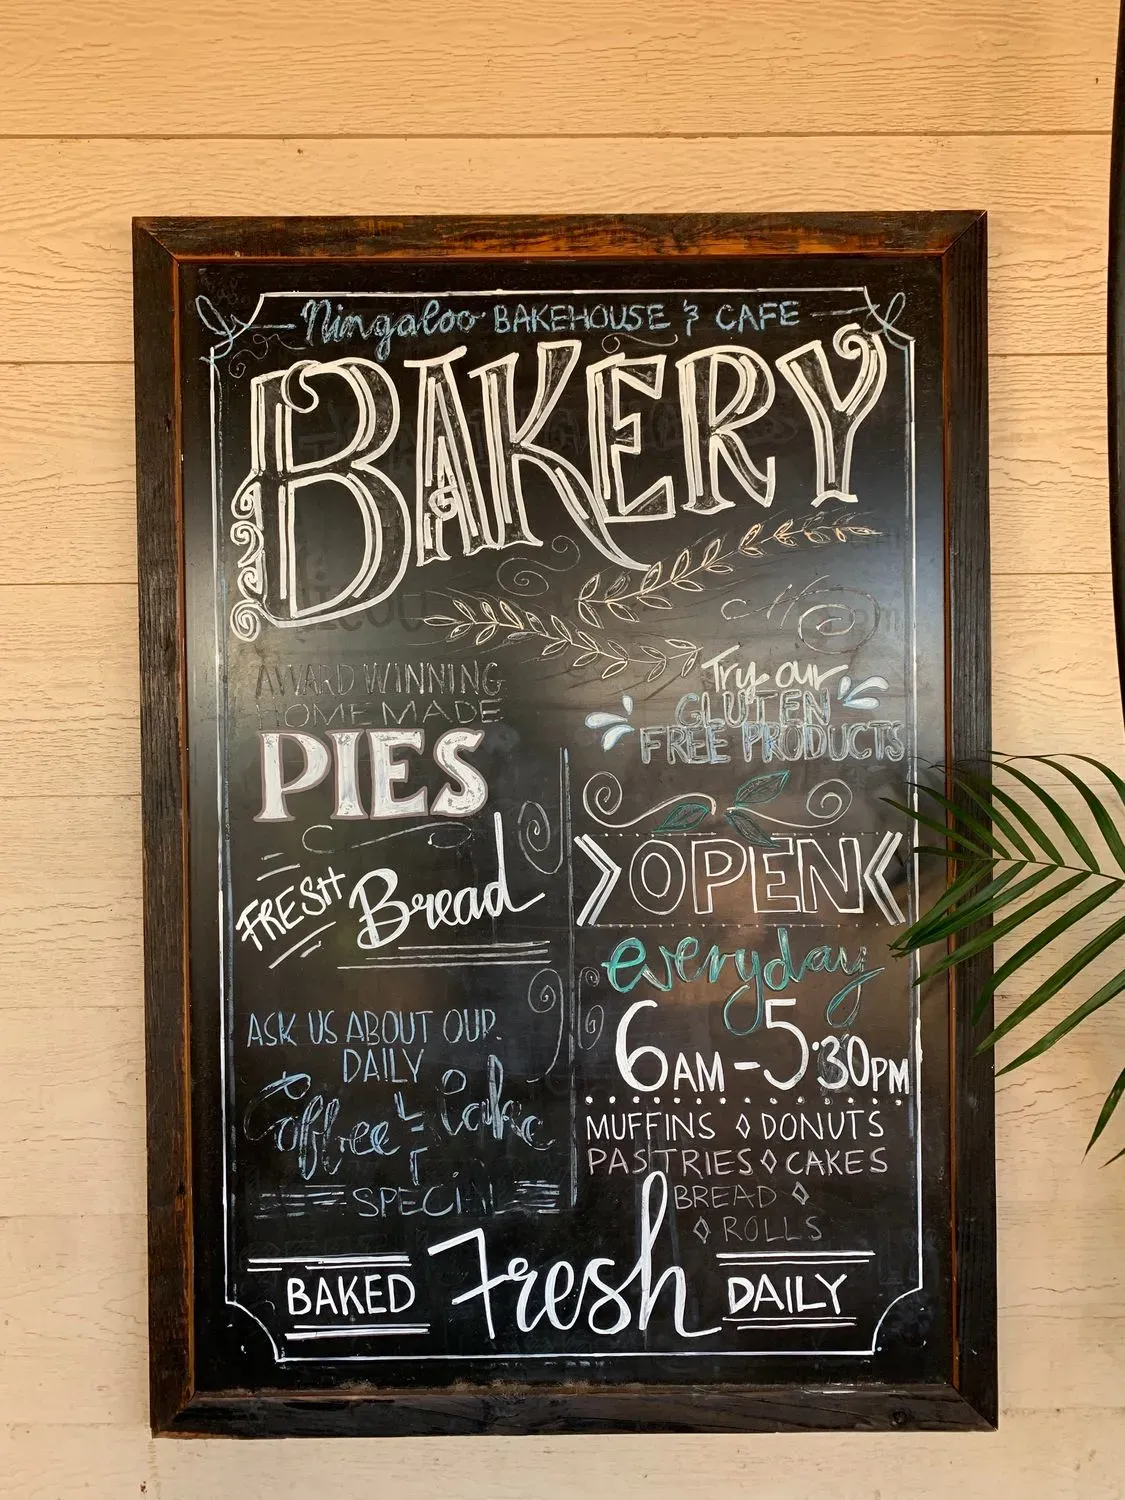 Ningaloo BAKEHOUSE & CAFE
BAKERY
AWARD WINNING
HOMEMADE
PIES
FRESH Bread
ASK US ABOUT OUR
DAILY
Coffee & Cake
SPECIAL
Try our
GLUTEN
FREE PRODUCTS
OPEN
everyday
6AM-5:30PM
MUFFINS ◊ DONUTS
PASTRIES ◊ CAKES
BREAD ◊
◊ ROLLS
BAKED Fresh DAILY